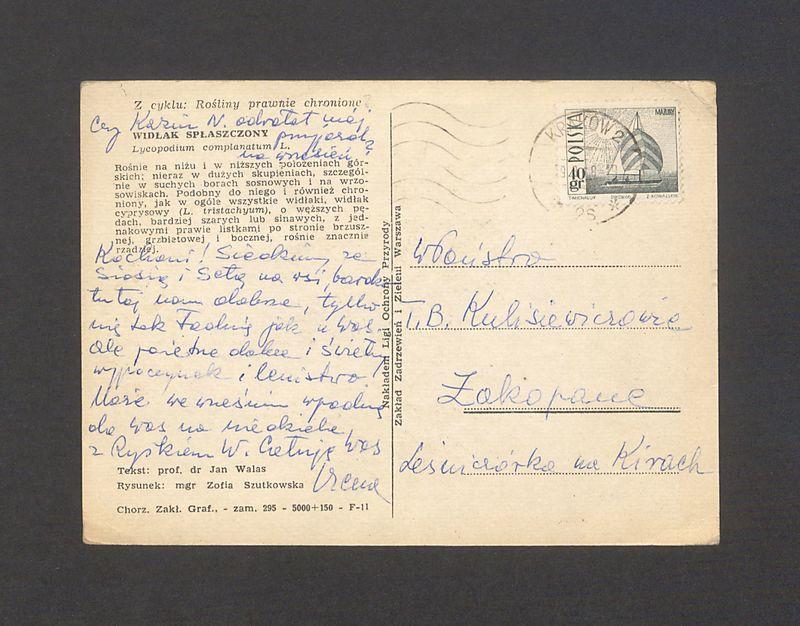 Z cyklu: Rośliny prawnie chronione
Czy Kazin N. odwołał mój
WIDŁAK SPŁASZCZONY przyjazd
Lycopodium complanatum L.
na wrzesień?
Rośnie na niżu i w niższych położeniach gór-
skich; nieraz w dużych skupieniach, szczegól-
nie w suchych borach sosnowych i na wrzo-
sowiskach. Podobny do niego i również chro-
niony, jak w ogóle wszystkie widłaki, widłak
cyprysowy (L. tristachyum), o węższych pę-
dach, bardziej szarych lub sinawych, z jed-
nakowymi prawie listkami po stronie brzusz-
nej, grzbietowej i bocznej, rośnie znacznie
rzadziej.
Kochani! Siedzimy ze
Stasią i na wsi, bardzo
tutaj nam dobrze, tylko
nie tak ładnie jak u Was
ale poietne dalee i świetny
wypoczynek i lenistwo
Może we wrześniu wpadnę
do Was na niedzielę,
z Ryśkiem W. Całuję Was
Irena
Tekst: prof. dr Jan Walas
Rysunek: mgr Zofia Szutkowska
Chorz. Zakł. Graf., - zam. 295 - 5000+150 - F-11
Nakładem Ligi Ochrony Przyrody
Zakład Zadrzewień i Zieleni Warszawa
KRAKÓW 2
POLSKA
40 gr
MAZURY
W Państwo
T.B. Kulisiewiczowie
Zakopane
Leśniczówka na Kirach